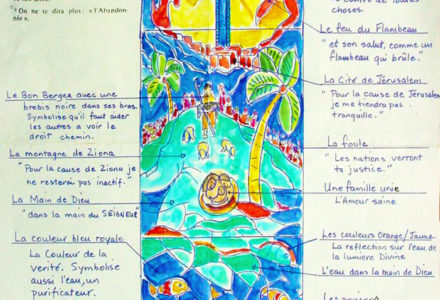 ⁴ On ne te dira plus: « l'Abandon-
née ».
choses.
Le feu du Flambeau
"et son salut, comme un
flambeau qui brûle."
Le Bon Berger avec une
brebis noire dans ses bras.
Symbolise qu'il faut aider
les autres a voir le
droit chemin.
La Cité de Jérusalem
"Pour la cause de Jérusalem
je me tiendrai pas
tranquille."
La montagne de Ziona
"Pour la cause de Ziona je
ne resterai pas inactif."
La foule
"Les nations verront
ta justice."
La Main de Dieu
"dans la main du SEIGNEUR"
Une famille unie
L'Amour saine
La couleur bleu royale
La Couleur de la
verité. Symbolise
aussi l'eau, un
purificateur.
Les couleurs Orange/Jaune
La reflection sur l'eau de
la lumiere Divine
L'eau dans la main de Dieu